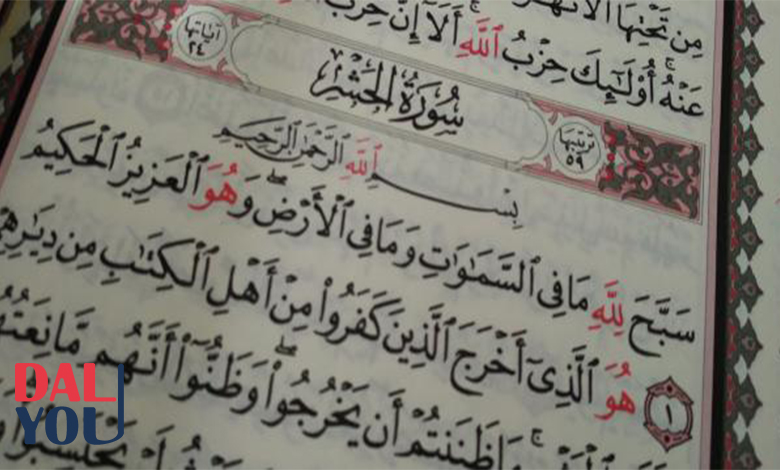 مِن تَحْتِهَا ٱلْأَنْهَـٰرُ
عَنْهُ ۚ أُو۟لَـٰٓئِكَ حِزْبُ ٱللَّهِ ۚ أَلَآ إِنَّ حِزْبَ
ترتيبها ٥٩ سُورَةُ الْحَشْرِ آياتها ٢٤
بِسْمِ ٱللَّهِ ٱلرَّحْمَـٰنِ ٱلرَّحِيمِ
سَبَّحَ لِلَّهِ مَا فِى ٱلسَّمَـٰوَٰتِ وَمَا فِى ٱلْأَرْضِ ۖ وَهُوَ ٱلْعَزِيزُ ٱلْحَكِيمُ
١ هُوَ ٱلَّذِىٓ أَخْرَجَ ٱلَّذِينَ كَفَرُوا۟ مِنْ أَهْلِ ٱلْكِتَـٰبِ مِن دِيَـٰرِهِ
مَا ظَنَنتُمْ أَن يَخْرُجُوا۟ ۖ وَظَنُّوٓا۟ أَنَّهُم مَّانِعَتُهُ
DAL
YOU